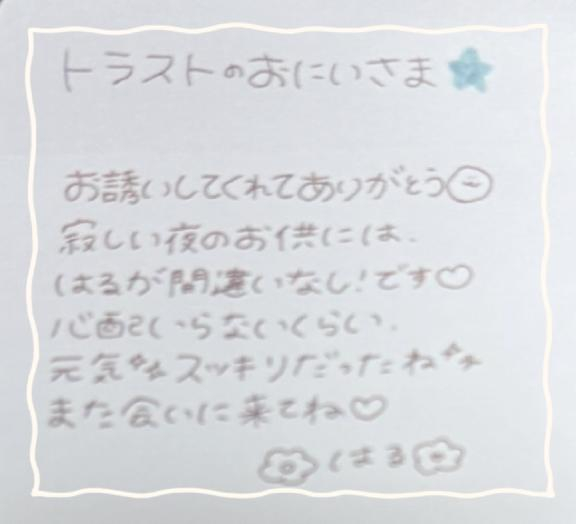 トラストのおにいさま
お誘いしてくれてありがとう
寂しい夜のお供には、
はるが間違いなし！です♡
心配いらないくらい、
元気スッキリだったね
また会いに来てね♡
はる